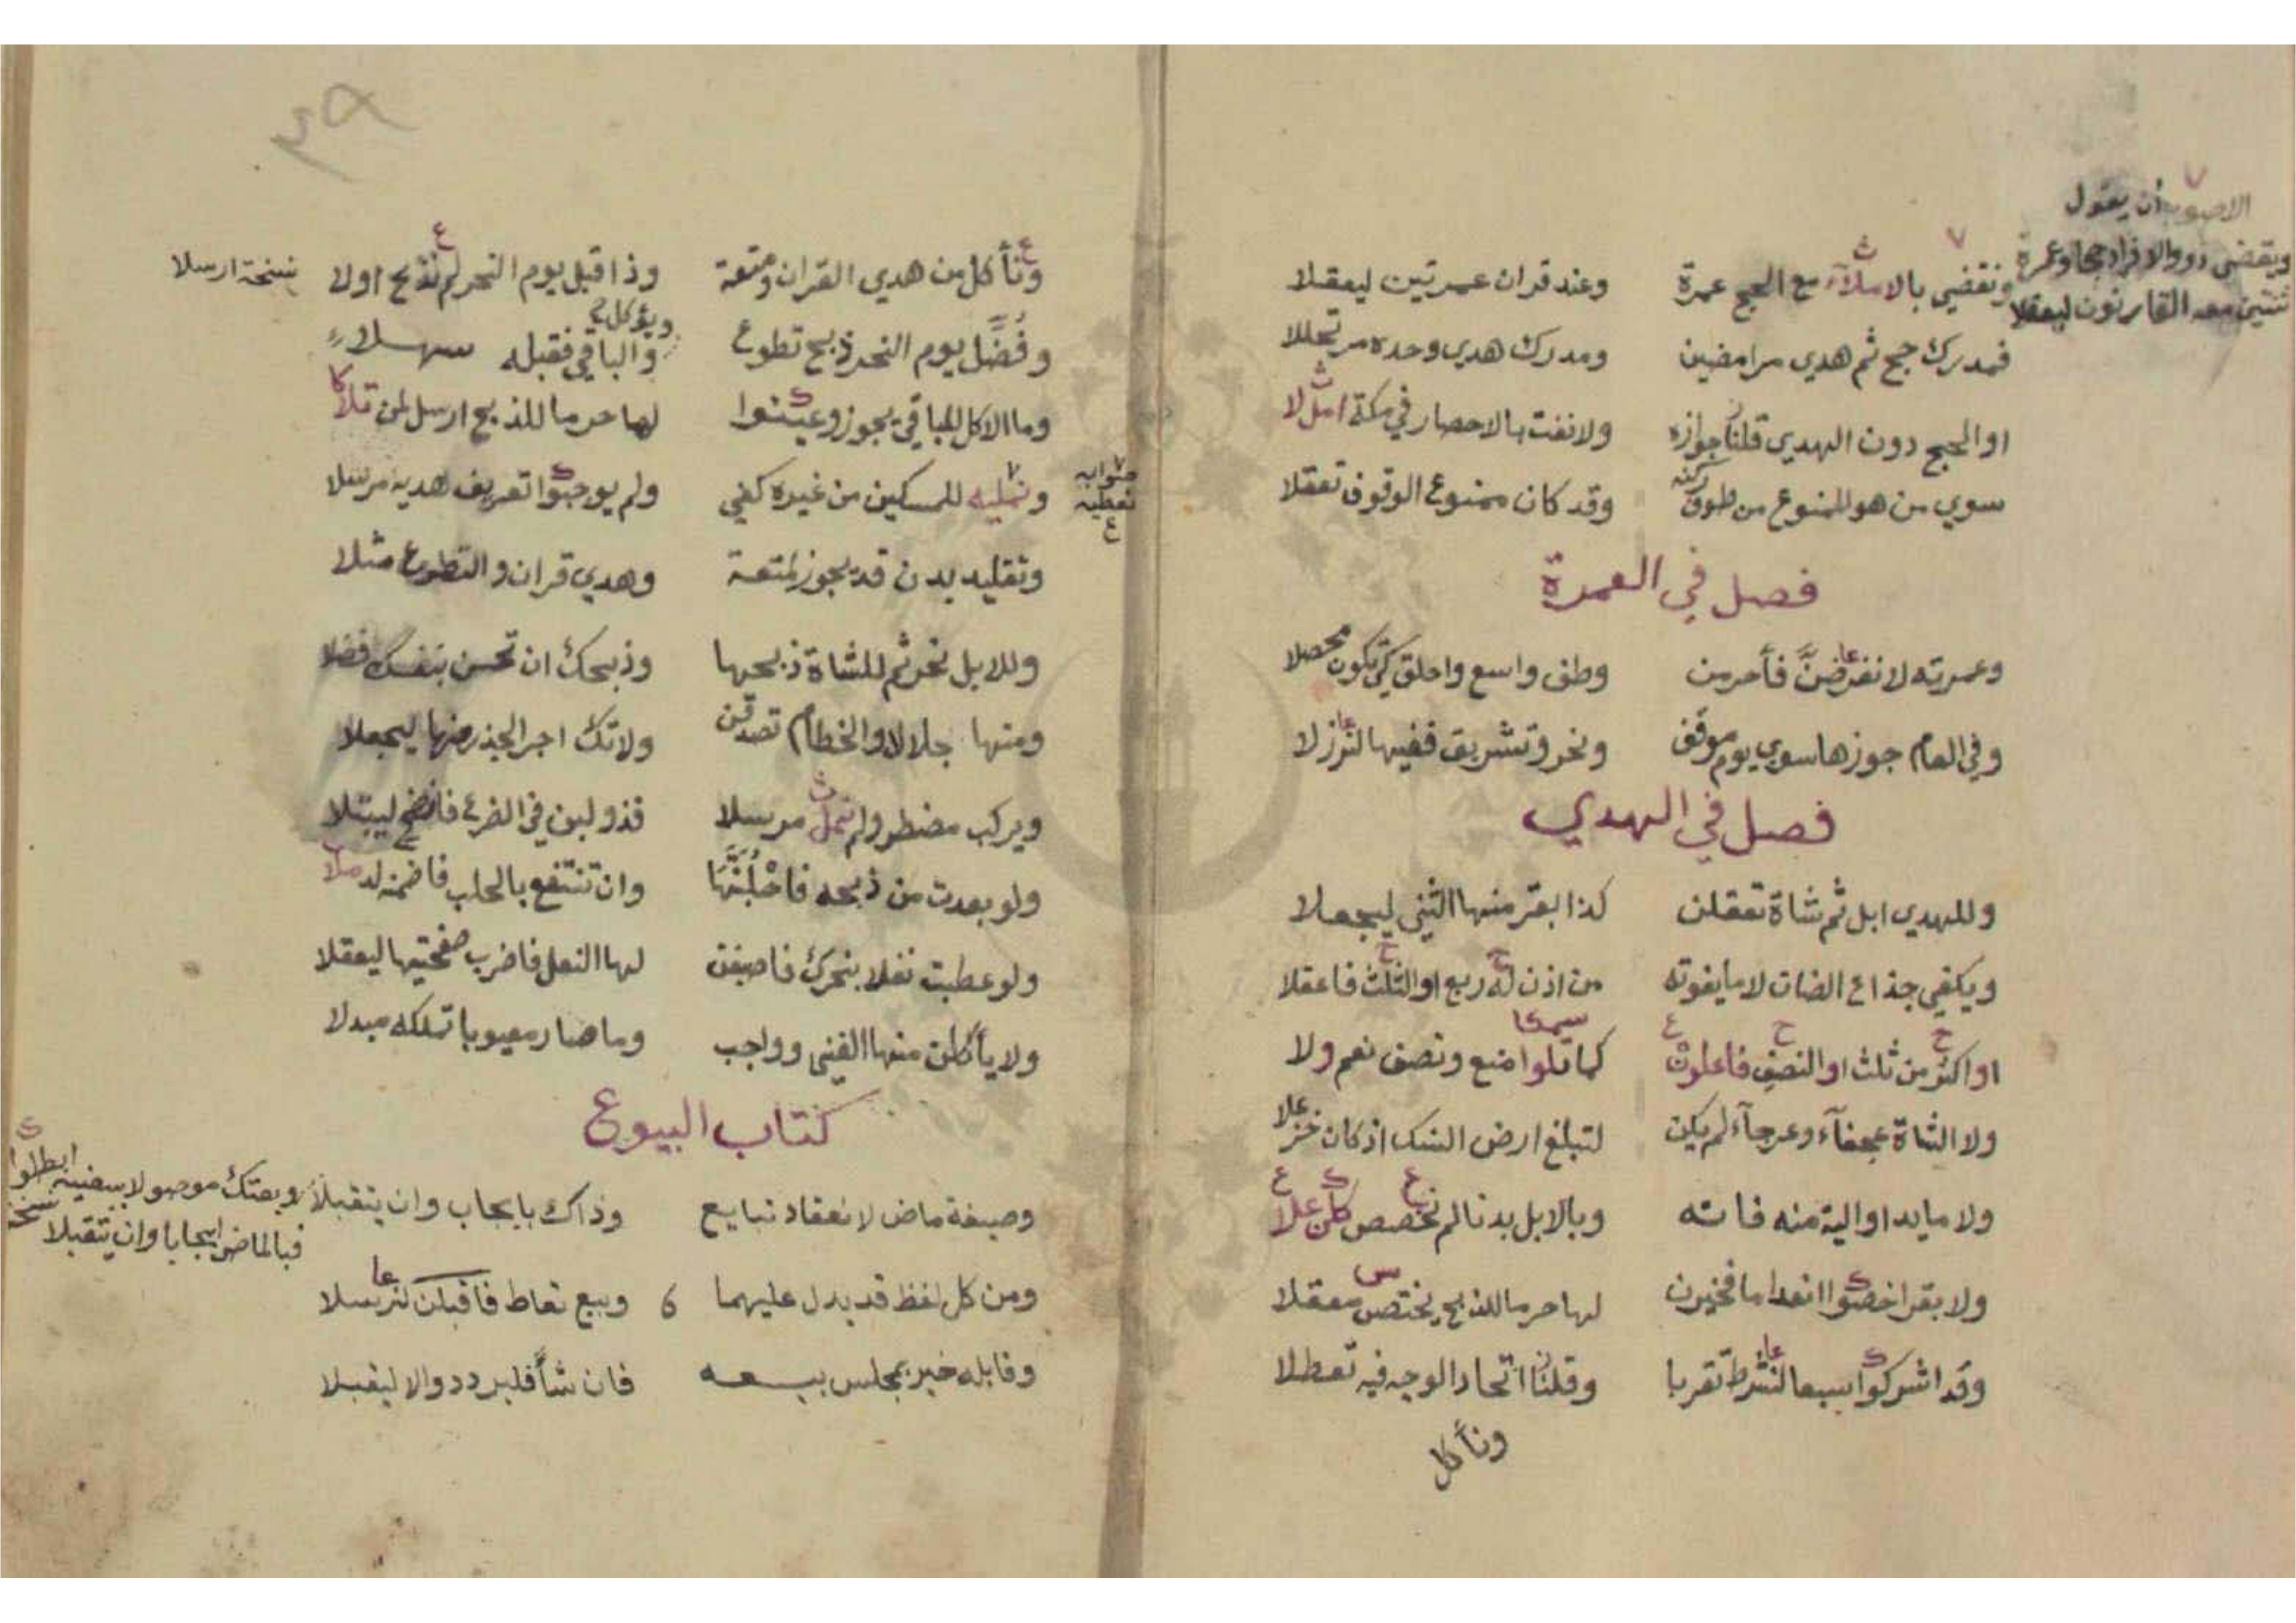 الاصوب أن يقول
ويقضي ذوو الافراد حجا وعمرة
ثنتين معه القارنون ليعقلا
ونقضي بالاملاء مع الحج عمرة وعند قران عمرتين ليعقلا
فمدرك حج ثم هدي مرامضين ومدرك هدي وحده مر تحللا
او الحج دون الهدي قلنا جوازه ولا نفت بالاحصار في مكة امثلا
سوي من هو الممنوع من طوف ركنه وقد كان ممنوع الوقوف تعقلا
فصل في العمرة
وعمرته لا نفرضنّ فأحرمن وطف واسع واحلق كي تكون محصلا
وفي العام جوزها سوي يوم موقف ونحر وتشريق ففيها لتزلا
فصل في الهدي
وللهدي ابل ثم شاة تعقلن كذا بقر منها الثني ليجعلا
ويكفي جذاع الضان لا ما يفوته من اذن له ربع او الثلث فاعقلا
او اكثر من ثلث او النصف فاعلمن كما تلوا منع ونصف نعم ولا
ولا الشاة عجفآء وعرجآء لم يكن لتبلغ ارض النسك اذ كان
ولا ما يد او الية منه فاته وبالابل بدنا لم نخصص كان علا
ولا بقر اخصوا انعداما فخيرن لها حرما للذبح يختص معقلا
وقد اشركوا سبعا لنشرط تقربا وقلنا اتحاد الوجه فيه تعطلا
ونأكل
٣٩
ونأكل من هدي القران ومتعة وذا قبل يوم النحر لم نذبح اولا
نسخة ارسلا
وفُضّل يوم النحر ذبح تطوع والباقي فقبله سهلا
ويؤكل
وما الاكل للباقي يجوز وعينوا لها حرما للذبح ارسل لمن تلا
ونمليه للمسكين من غيره كفي ولم يوجبوا تعريف هديه مرسلا
صوابه
نعطيه
وتقليد بدن قد يجوز لمتعة وهدي قران والتطوع مثلا
وللابل نحر ثم للشاة ذبحها وذبحك ان تحسن بنفسك فضلا
ومنها جلالا والخطام تصدقن ولا تك اجر الجذر منها ليجعلا
ويركب مضطر ولم نمل مرسلا فذو لبن في الضرع فانضح ليبتلا
ولو بعدت من ذبحه فاحلبنّها وان تنتفع بالحلب فاضمنه لد ملا
ولو عطبت نفلا بنحرك فاصبغن لها النعل فاضرب صفحتيها ليعقلا
ولا يأكلن منها الغني وواجب وما صار معيوبا تملكه مبدلا
كتاب البيوع
وصيغة ماض لانعقاد تبايع وذاك بايجاب وان يتقبلا
وبعتك موصولا ببيعنيه ابطلوا
فبالماض ايجابا وان يتقبلا نسخة
ومن كل لفظ قد يدل عليهما وبيع تعاط فاقبلن لنرسلا
وقابله خير بمجلس بيعه فان شآ فليردد والا ليقبلا